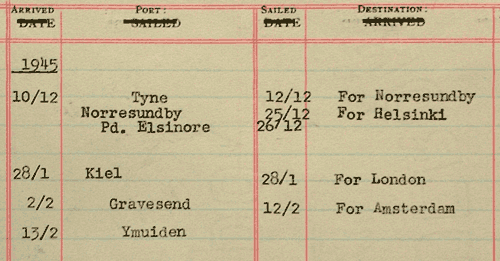 ARRIVED PORT: SAILED DESTINATION:
DATE SAILED DATE ARRIVED
1945
10/12 Tyne 12/12 For Norresundby
Norresundby 25/12 For Helsinki
Pd. Elsinore 26/12
28/1 Kiel 28/1 For London
2/2 Gravesend 12/2 For Amsterdam
13/2 Ymuiden